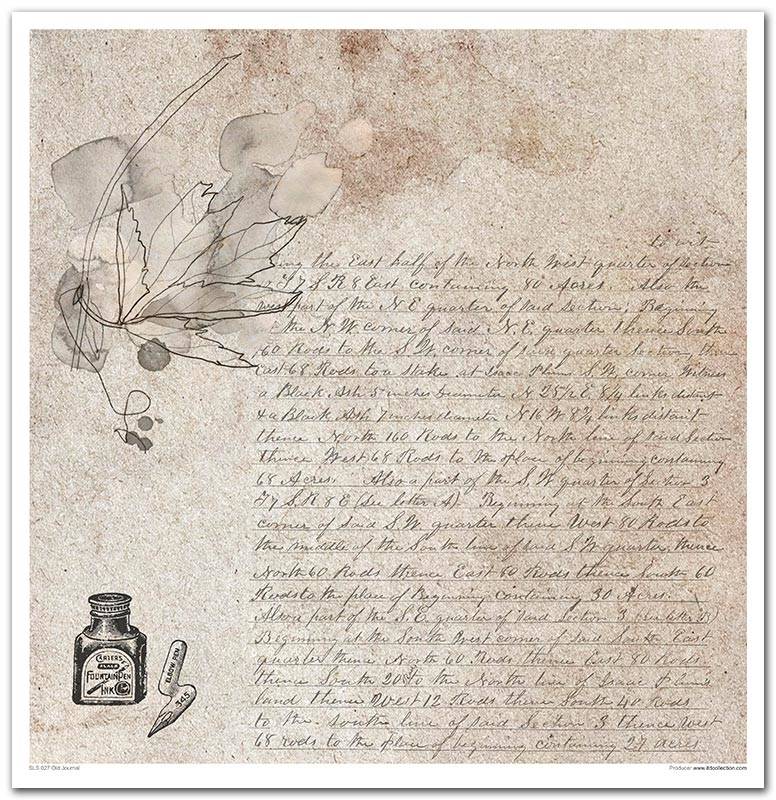 to wit
ing the East half of the North West quarter of Section
T 7 S. R 8 East containing 80 Acres. Also the
west part of the N. E quarter of said Section; Beginning
the N. W. corner of said N. E. quarter thence South
60 Rods to the S. W. corner of said quarter Section, thence
East 68 Rods to a stake at Isaac Plum's S. W. corner Witness
a Black Ash 5 inches diameter N 25½ E. 8¼ links distant
& a Black Ash 7 inches diameter N 16 W 8¾ links distant
thence North 160 Rods to the North line of said Section
thence West 68 Rods to the place of beginning containing
68 Acres. Also a part of the S. W quarter of Section 3
T 7 S. R 8 E (See letter A) Beginning at the South East
corner of said S. W. quarter thence West 80 Rods to
the middle of the South line of said S W quarter, thence
North 60 Rods thence East 60 Rods thence South 60
Rods to the place of Beginning containing 30 Acres.
Also a part of the S. E. quarter of said Section 3 (see letter B)
Beginning at the South West corner of said South East
quarter thence North 60 Rods thence East 80 Rods
thence South 20 to the North line of Isaac Plum's
land thence West 12 Rods thence South 40 Rods
to the south line of said Section 3 thence West
68 rods to the place of beginning containing 27 acres
CARTER'S
BLACK
FOUNTAIN PEN
INK
ELBOW PEN
345
SLS 027 Old Journal
Producer www.itdcollection.com